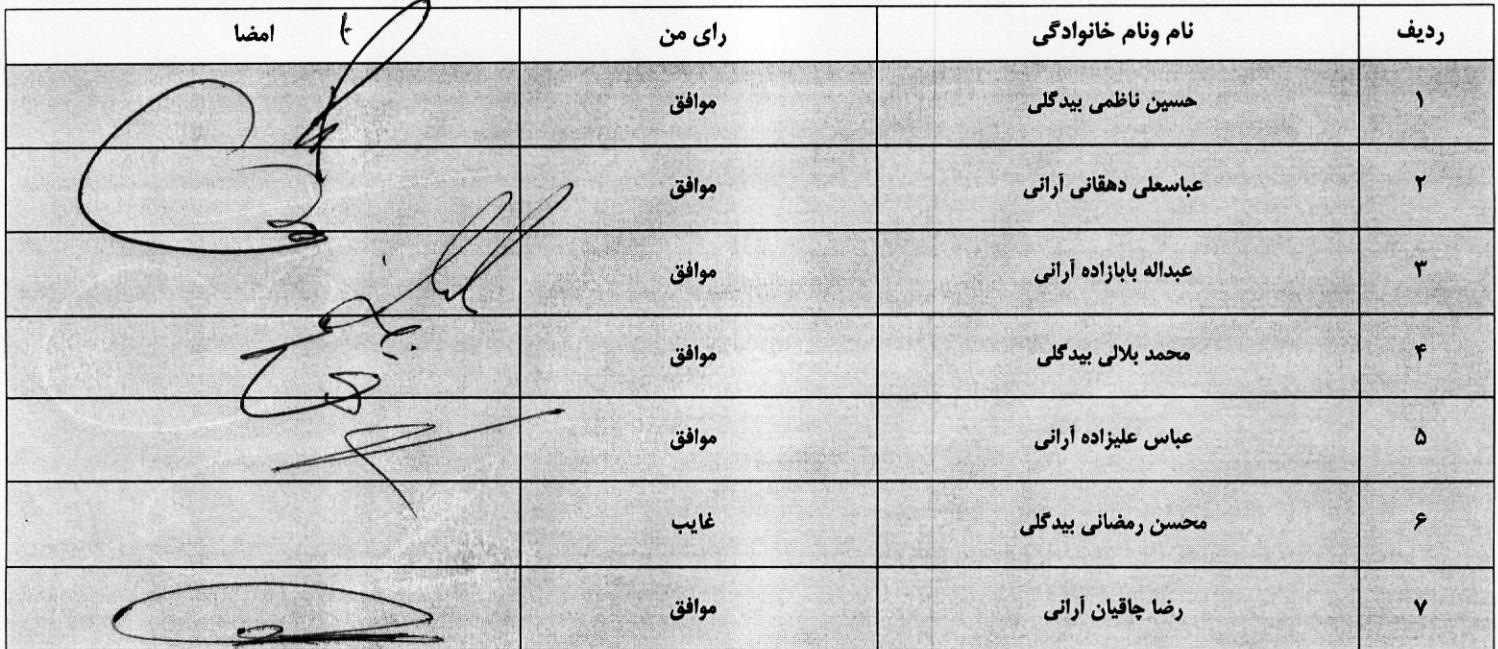 ردیف نام ونام خانوادگی رای من امضا
۱ حسین ناظمی بیدگلی موافق
۲ عباسعلی دهقانی آرانی موافق
۳ عبداله بابازاده آرانی موافق
۴ محمد بلالی بیدگلی موافق
۵ عباس علیزاده آرانی موافق
۶ محسن رمضانی بیدگلی غایب
۷ رضا چاقیان آرانی موافق